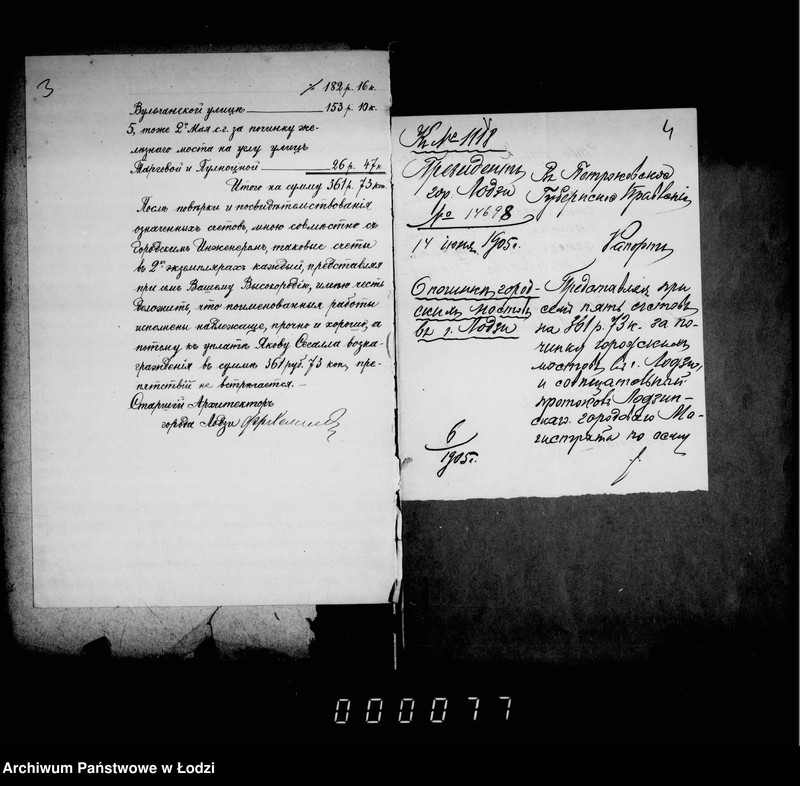 3
182 р. 16 к.
Вульчанской улицы 153 р. 10 к.
5, тоже 2го Мая с.г. за починку же-
лезнаго моста на углу улиц
Торговой и Гулноцкой 26 р. 47 к.
Итого на сумму 361 р. 73 коп.
После поверки и посвидетельствования
означенных счетов, мною совместно съ
Городским Инженером, таковые счеты
в 2х экземплярах каждый, представляя
при сем Вашему Высокородію, имею честь
доложить, что поименованныя работы
исполнены надлежаще, прочно и хорошо, а
потому къ уплате Якову Сесалла возна-
граждения в сумме 361 руб. 73 коп. пре-
пятствій не встречается. —
Старшій Архитекторъ
города Лодзи
4
К № 1118
Президентъ
гор. Лодзи
№ 14698
14 іюня 1905 г.
О починке город-
ских мостов
въ г. Лодзи
6
1905 г.
Въ Петроковское
Губернское Правленіе
Рапортъ
Представляя при
сем пять счетов
на 361 р. 73 к. за по-
чинку городских
мостов въ г. Лодзи,
и
протокол Лодзин-
скаго городоваго Ма-
гистрата по
000077
Archiwum Państwowe w Łodzi